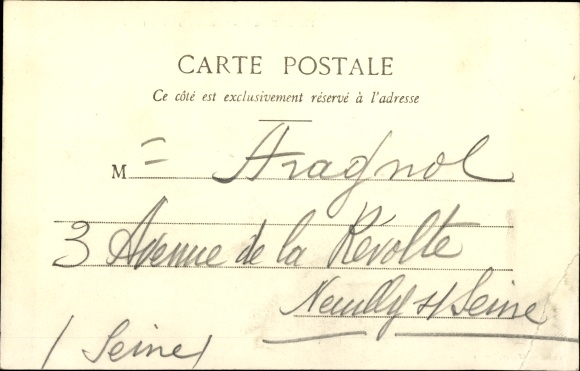 CARTE POSTALE
Ce côté est exclusivement réservé à l'adresse
M = Aragnol
3 Avenue de la Révolte
Neuilly s/ Seine
(Seine)